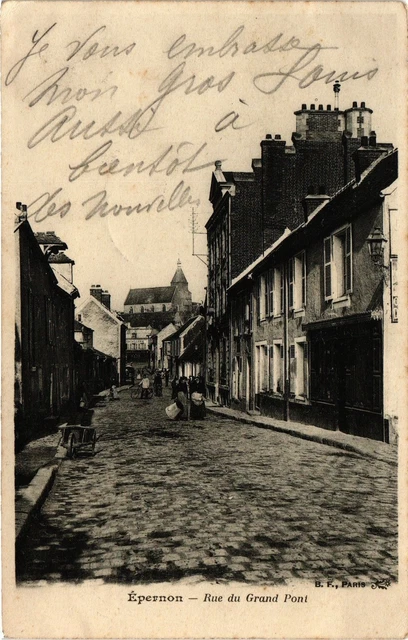 Je vous embrasse
mon gros Louis
Aussi à
bientôt
des nouvelles
Épernon — Rue du Grand Pont
B. F., PARIS